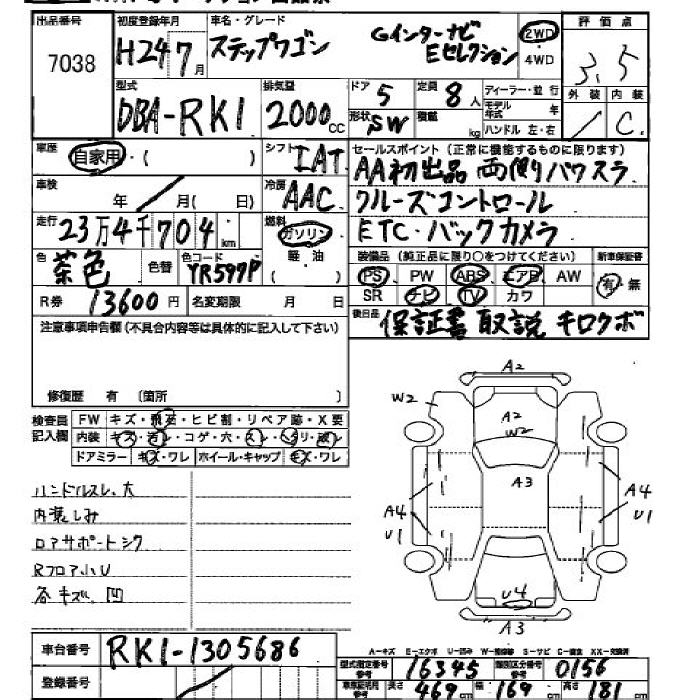 出品番号 初度登録年月 車名・グレード 評価点
7038 H24 7月 ステップワゴン Gインターナビ Eセレクション 2WD ・ 4WD 3.5
型式 排気量 ドア 5 定員 8人 ディーラー・並行 外装 内装
DBA-RK1 2000cc 形状 SW 積載 kg モデル年式 年 ハンドル 左・右 / C.
車歴 自家用・( ) シフト IAT セールスポイント(正常に機能するものに限ります)
AA初出品 両側パワスラ
車検 年 / 月( 日) 冷房 AAC クルーズコントロール
走行 23万4千704km 燃料 ガソリン ・ 軽油 ETC・バックカメラ
色 茶色 色替 色コード YR597P 装備品(純正品に限り○をつけてください) 新車保証書
PS PW ABS エアB AW 有・無
R券 13600円 名変期限 月 日 SR ナビ TV カワ
注意事項申告欄(不具合内容等は具体的に記入して下さい) 後日品 保証書 取説 キロクボ
修復歴 有 〔箇所 〕
検査員記入欄 FW キズ・飛石・ヒビ割・リペア跡・X要
内装 キズ・汚レ・コゲ・穴・スレ・ヘタリ・破レ
ドアミラー キズ・ワレ ホイール・キャップ キズ・ワレ
ハンドルスレ大
内装しみ
ロアサポートシタ
Rフロア小U
各キズ、凹
A2
W2
A2
W2
A3
A4
U1
A4
U1
U4
A3
車台番号 RK1-1305686
A-キズ E-エクボ U-凹み W-補修跡 S-サビ C-腐食 XX-交換済
登録番号
型式指定番号 参考 16345 類別区分番号 参考 0156
車検証明用 参考 長さ 469cm 幅 169cm 高さ 181cm